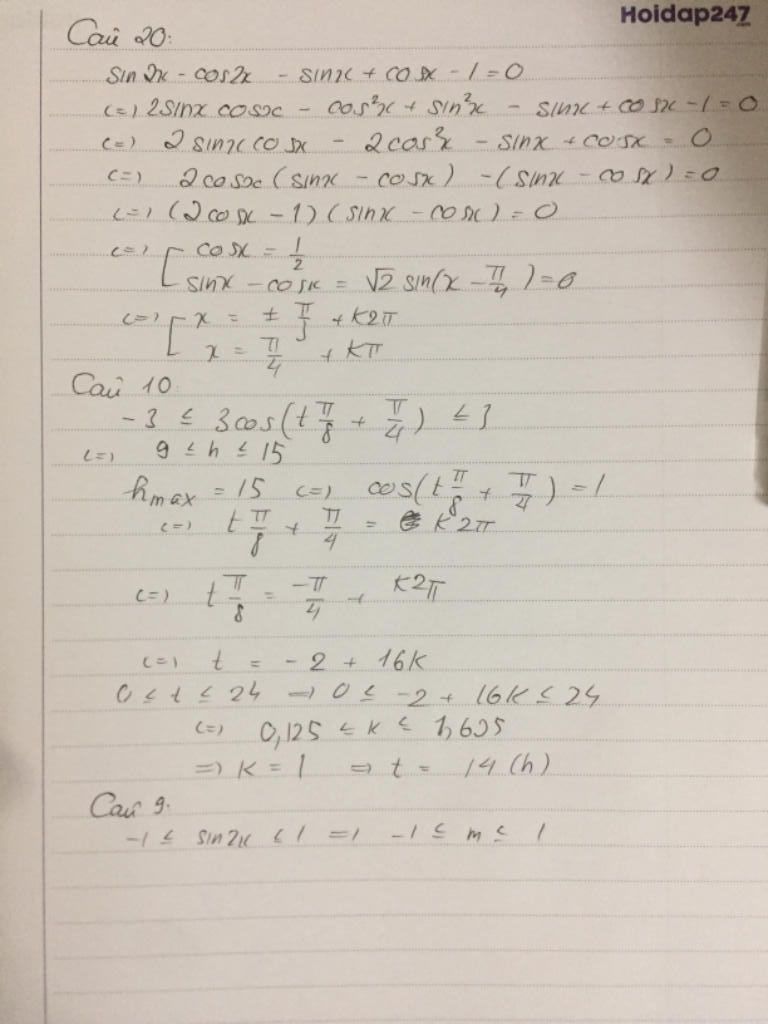 Hoidap247
.com
Câu 20:
sin2x - cos2x - sinx + cosx - 1 = 0
<=> 2sinx cosx - cos²x + sin²x - sinx + cosx - 1 = 0
<=> 2sinx cosx - 2cos²x - sinx + cosx = 0
<=> 2cosx (sinx - cosx) - (sinx - cosx) = 0
<=> (2cosx - 1)(sinx - cosx) = 0
<=> [ cosx = 1/2
sinx - cosx = √2 sin(x - π/4) = 0
<=> [ x = ± π/3 + k2π
x = π/4 + kπ
Câu 10
-3 ≤ 3cos(t π/8 + π/4) ≤ 3
<=> 9 ≤ h ≤ 15
hmax = 15 <=> cos(t π/8 + π/4) = 1
<=> t π/8 + π/4 = k2π
<=> t π/8 = -π/4 + k2π
<=> t = -2 + 16k
0 ≤ t ≤ 24 => 0 ≤ -2 + 16k ≤ 24
<=> 0,125 ≤ k ≤ 1,625
=> k = 1 => t = 14 (h)
Câu 9:
-1 ≤ sin2x ≤ 1 => -1 ≤ m ≤ 1